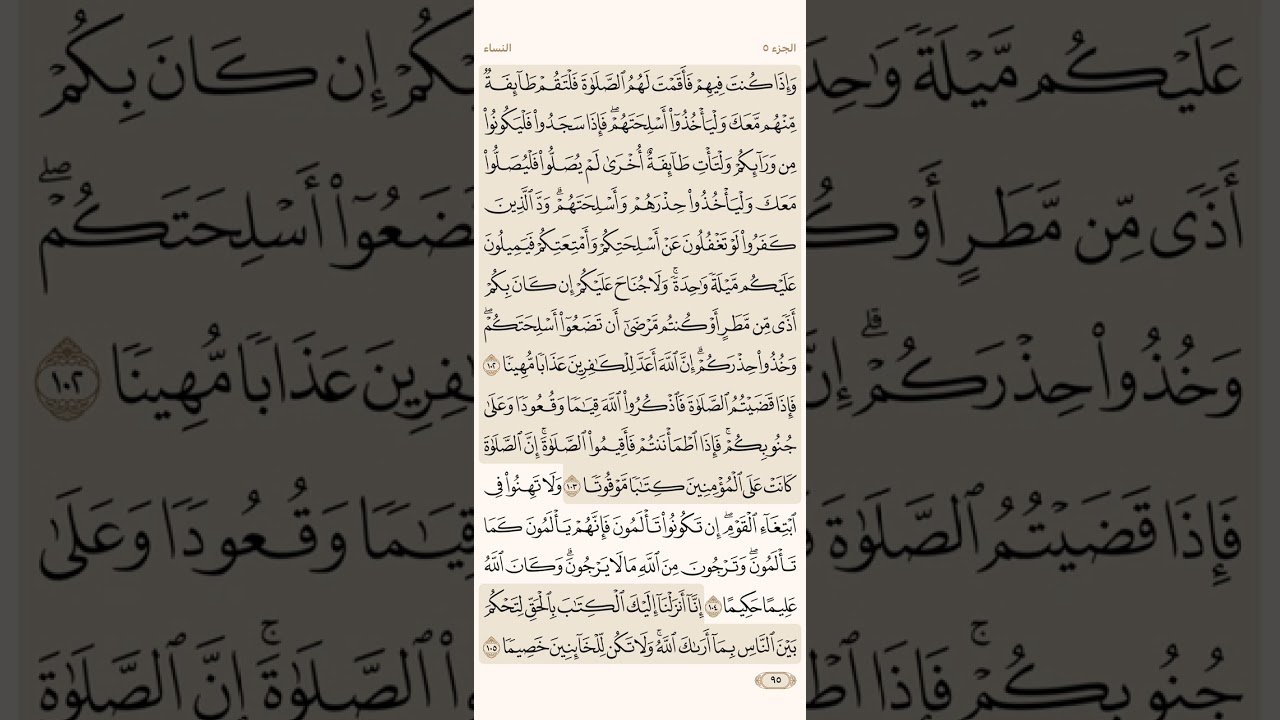 الجزء ٥ النساء
وَإِذَا كُنتَ فِيهِمْ فَأَقَمْتَ لَهُمُ ٱلصَّلَوٰةَ فَلْتَقُمْ طَآئِفَةٌ
مِّنْهُم مَّعَكَ وَلْيَأْخُذُوٓا۟ أَسْلِحَتَهُمْ ۖ فَإِذَا سَجَدُوا۟ فَلْيَكُونُوا۟
مِن وَرَآئِكُمْ وَلْتَأْتِ طَآئِفَةٌ أُخْرَىٰ لَمْ يُصَلُّوا۟ فَلْيُصَلُّوا۟
مَعَكَ وَلْيَأْخُذُوا۟ حِذْرَهُمْ وَأَسْلِحَتَهُمْ ۗ وَدَّ ٱلَّذِينَ
كَفَرُوا۟ لَوْ تَغْفُلُونَ عَنْ أَسْلِحَتِكُمْ وَأَمْتِعَتِكُمْ فَيَمِيلُونَ
عَلَيْكُم مَّيْلَةً وَٰحِدَةً ۚ وَلَا جُنَاحَ عَلَيْكُمْ إِن كَانَ بِكُمْ
أَذًى مِّن مَّطَرٍ أَوْ كُنتُم مَّرْضَىٰٓ أَن تَضَعُوٓا۟ أَسْلِحَتَكُمْ ۖ
وَخُذُوا۟ حِذْرَكُمْ ۗ إِنَّ ٱللَّهَ أَعَدَّ لِلْكَٰفِرِينَ عَذَابًا مُّهِينًا ١٠٢
فَإِذَا قَضَيْتُمُ ٱلصَّلَوٰةَ فَٱذْكُرُوا۟ ٱللَّهَ قِيَٰمًا وَقُعُودًا وَعَلَىٰ
جُنُوبِكُمْ ۚ فَإِذَا ٱطْمَأْنَنتُمْ فَأَقِيمُوا۟ ٱلصَّلَوٰةَ ۚ إِنَّ ٱلصَّلَوٰةَ
كَانَتْ عَلَى ٱلْمُؤْمِنِينَ كِتَٰبًا مَّوْقُوتًا ١٠٣ وَلَا تَهِنُوا۟ فِى
ٱبْتِغَآءِ ٱلْقَوْمِ ۖ إِن تَكُونُوا۟ تَأْلَمُونَ فَإِنَّهُمْ يَأْلَمُونَ كَمَا
تَأْلَمُونَ ۖ وَتَرْجُونَ مِنَ ٱللَّهِ مَا لَا يَرْجُونَ ۗ وَكَانَ ٱللَّهُ
عَلِيمًا حَكِيمًا ١٠٤ إِنَّآ أَنزَلْنَآ إِلَيْكَ ٱلْكِتَٰبَ بِٱلْحَقِّ لِتَحْكُمَ
بَيْنَ ٱلنَّاسِ بِمَآ أَرَىٰكَ ٱللَّهُ ۚ وَلَا تَكُن لِّلْخَآئِنِينَ خَصِيمًا ١٠٥
٩٥